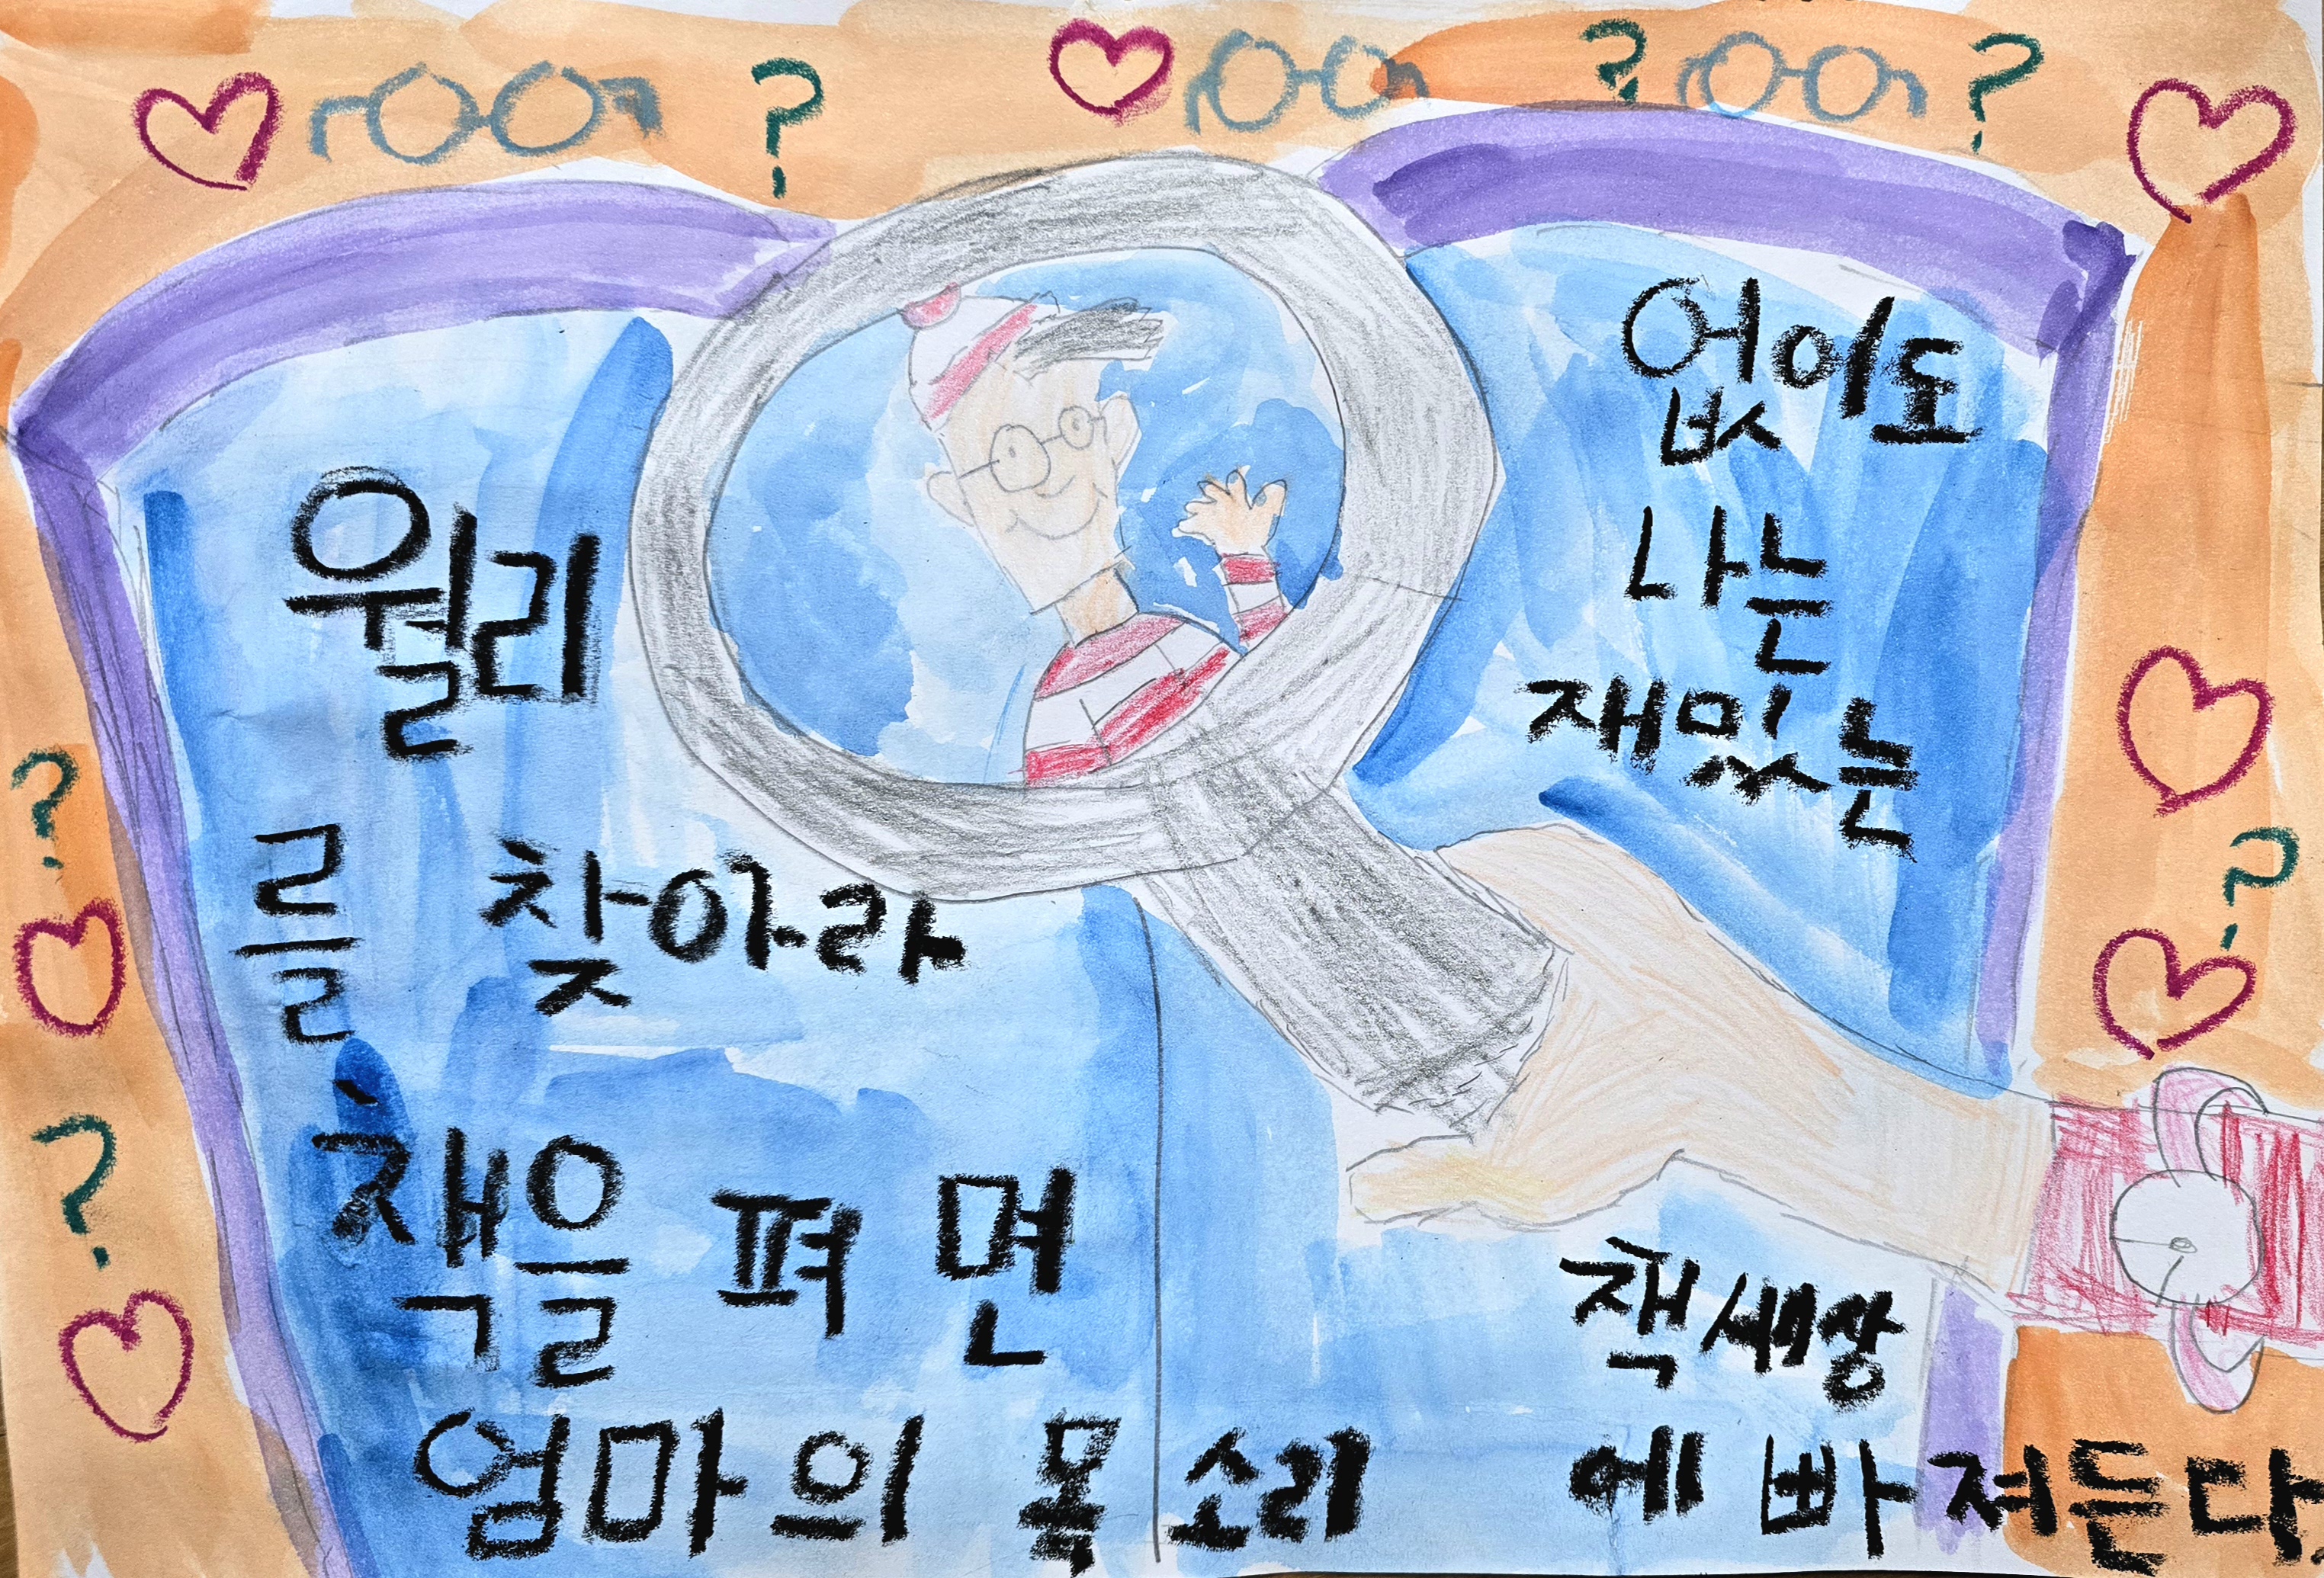 월리
를 찾아라
책을 펴면
엄마의 목소리
없이도
나는
재밌는
책세상
에 빠져든다.